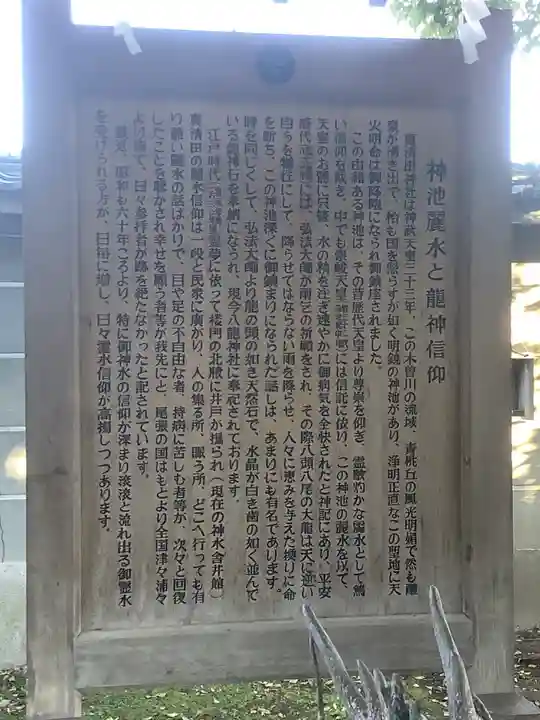 神池麗水と龍神信仰
真清田神社は神武天皇三十三年、この木曽川の流域、青桃丘の風光明媚で然も霊
泉が湧き出で、恰も国を憩うすが如く明鏡の神池があり、浄明正直なこの聖地に天
火明命は御降臨になられ御鎮座されました。
この由緒ある神池は、その昔歴代天皇より尊崇を仰ぎ、霊験灼かな霊水として篤
い信仰を戴き、中でも崇峻天皇には信託に依り、この神池の麗水を以て、
天皇のお聴に只管、水の精を注ぎ速やかに御病気を全快されたと神記にあり、平安
時代には、弘法大師が雨乞の祈願をされ、その際八頭八尾の大龍は天に逆い
自らを犠牲にして、降らせてはならない雨を降らせ、人々に恵みを与えた換りに命
を断ち、この神池深くに御鎮まりになられた話しは、あまりにも有名であります。
時を同じくして、弘法大師より龍の頭の如き天然石で、水晶が白き歯の如く並んで
いる龍神石を奉納になられ、現今八龍神社に奉祀されております。
江戸時代霊夢に依って楼門の北脇に井戸が掘られ（現在の神水舎井館）
真清田の霊水信仰は一段と民衆に広がり、人の集る所、賑う所、どこへ行っても有
り難い霊水の話ばかりで、目や足の不自由な者、持病に苦しむ者等が、次々と回復
したことを聴かされ幸せを願う者等が我先にと、尾張の国はもとより全国津々浦々
より来て、日々参拝者が跡を絶たなかったと記されています。
最近、昭和も六十年ころより、特に御神水の信仰が深まり淡淡と流れ出る御霊水
を受けられる方が、日毎に増し、日々霊水信仰が高揚しつつあります。